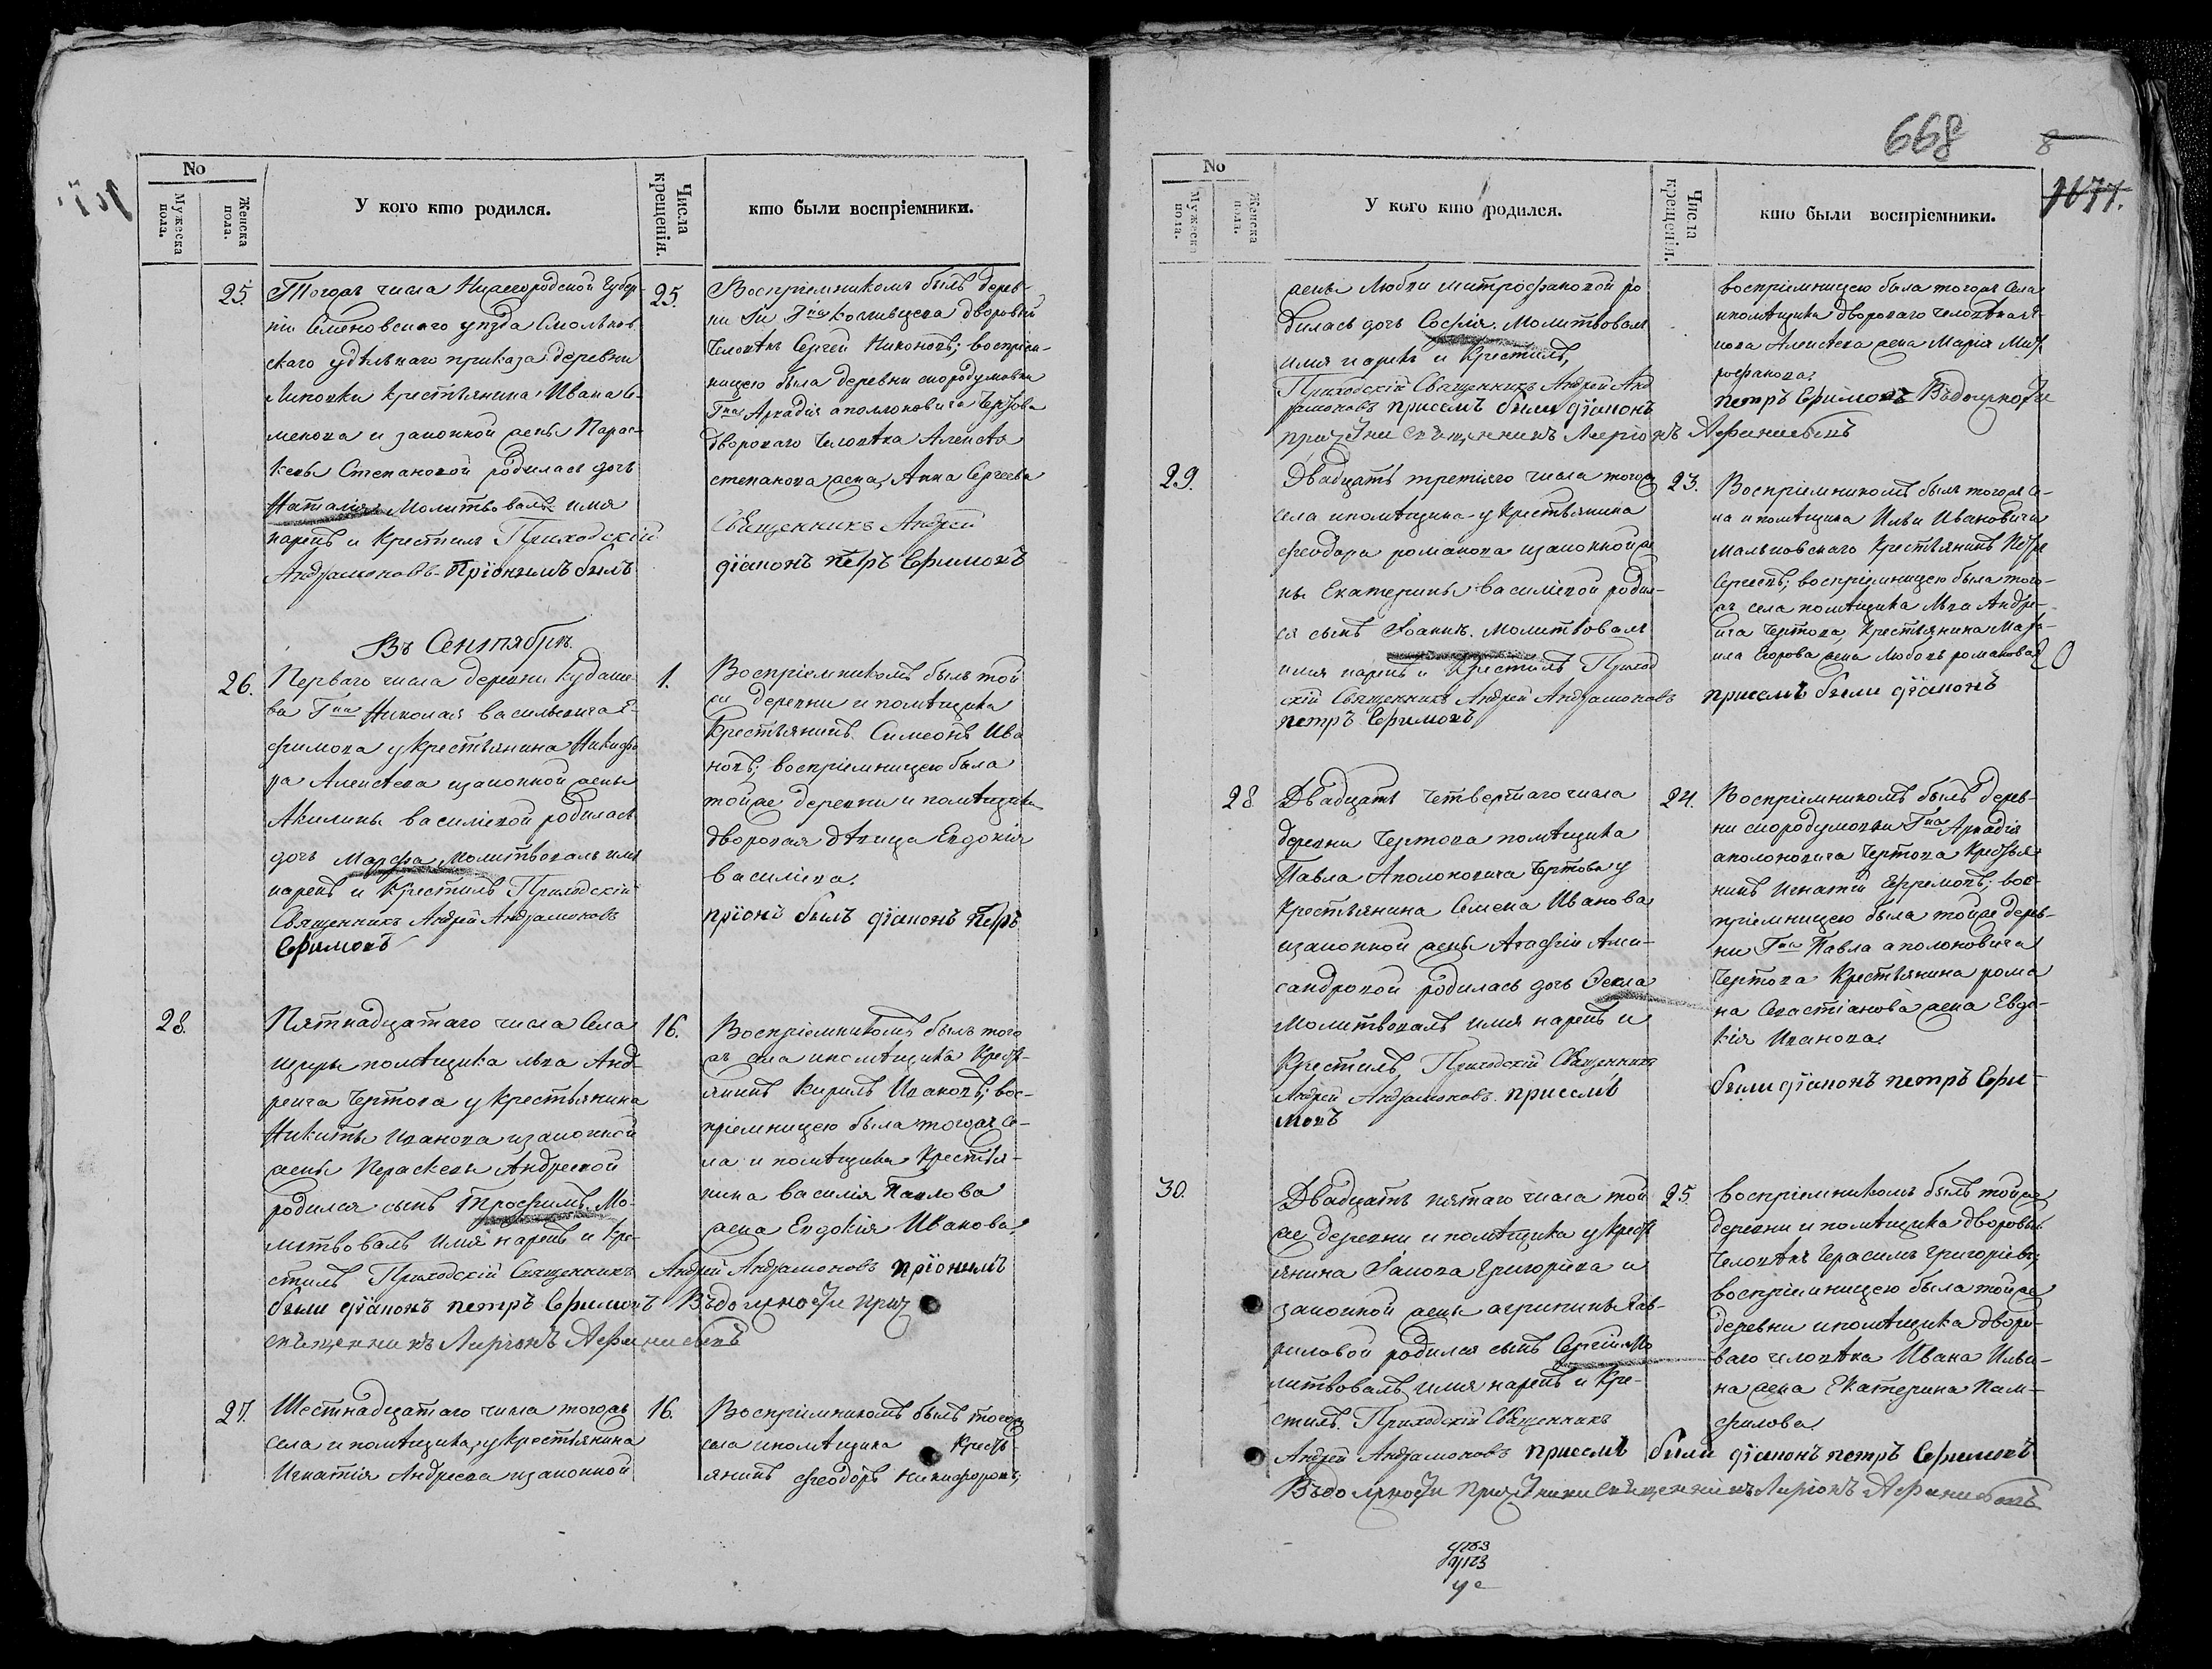 No
Мужеска пола.
Женска пола.
У кого кто родился.
Числа крещенія.
кто были воспріемники.
25.
Тогожъ числа Нижегородской Губер-
ніи Семеновскаго уѣзда Смольков
скаго удѣльнаго приказа деревни
Липовки крестьянина Ивана Се-
менова и законной жены Парас-
кевы Степановой родилась дочь
Наталія. Молитвовалъ имя
нарекъ и крестилъ Приходскій
Андрамоновъ. Пріонымъ былъ
25.
Воспріемникомъ былъ дерев-
ни Гна дворовый
человѣкъ Сергей Никоновъ; воспріем-
ницею была деревни скородумовки
Гна Аркадія аполоновича Чертова
двороваго человѣка Алексѣя
степанова жена, Анна Сергеева
Священникъ Андрей
діаконъ петръ Ефимовъ
Въ Сентябрѣ.
26.
Перваго числа деревни Кудаше-
ва Гна Николая васильевича Е-
фимова у крестьянина Никифо
ра Алексѣева изаконной жены
Акилины василіевой родилась
дочь Марфа, Молитвовалъ имя
нарекъ и крестилъ Приходскій
Священникъ Андрей Андрамоновъ
Ефимовъ
1.
Воспріемникомъ былъ той
же деревни и помѣщика
Крестьянинъ Симеонъ Ива
новъ; воспріемницею была
тойже деревни и помѣщика
дворовая дѣвица Евдокія
василіева.
пріонъ былъ діаконъ петръ
28.
Пятнадцатаго числа Села
помѣщика льва Анд-
реича Чертова у крестьянина
Никиты Иванова изаконной
жены Параскевы Андреевой
родился сынъ Трофимъ. Мо-
литвовалъ имя нарекъ и кре-
стилъ Приходскій Священникъ Андрей Андрамоновъ пріонымъ
были діаконъ петръ Ефимовъ Въдолжности прич
священникъ Ларіонъ Афанисьевъ
16.
Воспріемникомъ былъ того
жъ села ипомѣщика Крестъ-
янинъ Кирилъ Ивановъ; вос-
пріемницею была тогожъ Се-
ла и помѣщика Крестья-
нина василія Павлова
жена Евдокія Иванова.
27.
Шестнадцатаго числа тогожъ
села и помѣщика, у крестьянина
Игнатія Андреева изаконной
16.
Воспріемникомъ былъ тогожъ
села ипомѣщика Кресть-
янинъ феодоръ никифоровъ;
668
8
1677.
No
Мужеска пола.
Женска пола.
У кого кто родился.
Числа крещенія.
кто были воспріемники.
жены Любви митрофановой ро
дилась дочь Софія. Молитвовалъ
имя нарекъ и Крестилъ,
Приходскій Священникъ Андрей Анд
рамоновъ присемъ были діаконъ
воспріемницею была тогожъ Села
ипомѣщика двороваго человѣка
Алексѣева жена Марія Мит-
рофанова.
петръ Ефимовъ Въдолжности
священникъ Ларіонъ Афанисьевъ
29.
Двадцать третіяго числа тогожъ
села ипомѣщика у крестьянина
феодора романова изаконной же
ны Екатерины василіевой родил-
ся сынъ Іоаннъ. Молитвовалъ
имя нарекъ и Крестилъ Приход
скій Священникъ Андрей Андрамоновъ присемъ были діаконъ
петръ Ефимовъ
23.
Воспріемникомъ былъ тогожъ се-
ла и помѣщика Ильи Ивановича
Мальковскаго Крестьянинъ Петръ
Сергеевъ; воспріемницею была того-
жъ села помѣщика Льва Андре-
ича Чертова, Крестьянина
Егорова жена Любовь романова
28
Двадцать Четвертаго числа
деревни Чертова помѣщика
Павла Аполоновича Чертова у
крестьянина Семена Иванова
изаконной жены Агафіи Алек-
сандровой родилась дочь Ѳекла
Молитвовалъ имя нарекъ и
Крестилъ, Приходскій Священникъ
Андрей Андрамоновъ. присемъ
мовъ
24.
Воспріемникомъ былъ дерев-
ни скородумовки Гна Аркадія
аполоновича Чертова Крестья-
нинъ Игнатій Ефремовъ; вос-
пріемницею была тойже дерев-
ни Гна Павла аполоновича
Чертова Крестьянина рома
на Севастіанова жена Евдо-
кія Иванова.
были діаконъ петръ Ефи-
30.
Двадцать пятаго числа той
же деревни и помѣщика у крест
янина Іакова Григорьева и
законной жены агрипины Гав-
риловой родился сынъ Сергій. Мо
литвовалъ имя нарекъ и Кре-
стилъ. Приходскій Священникъ
Андрей Андрамоновъ присемъ были діаконъ петръ Ефимовъ
Въдолжности причетника священникъ Ларіонъ Афанисьевъ
25.
воспріемникомъ былъ тойже
деревни и помѣщика дворовый
Человѣкъ Герасимъ Григорьевъ;
воспріемницею была тойже
деревни ипомѣщика дворо-
ваго человѣка Ивана Ильи-
на жена Екатерина Пам-
филова.